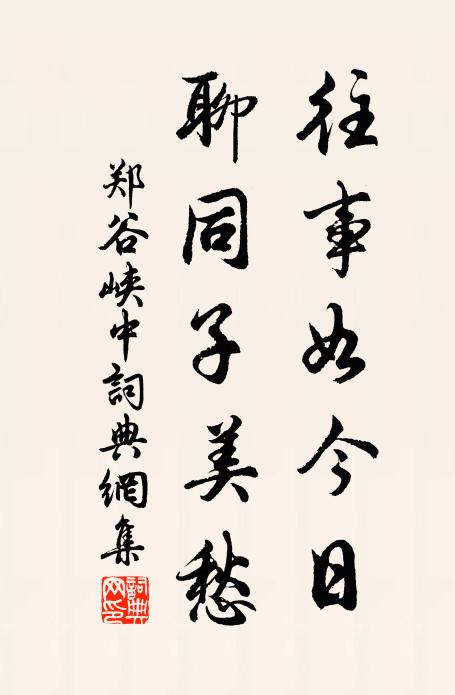 往事如今日
聊同子美愁
郑谷峡中詞典網集
詞典网印